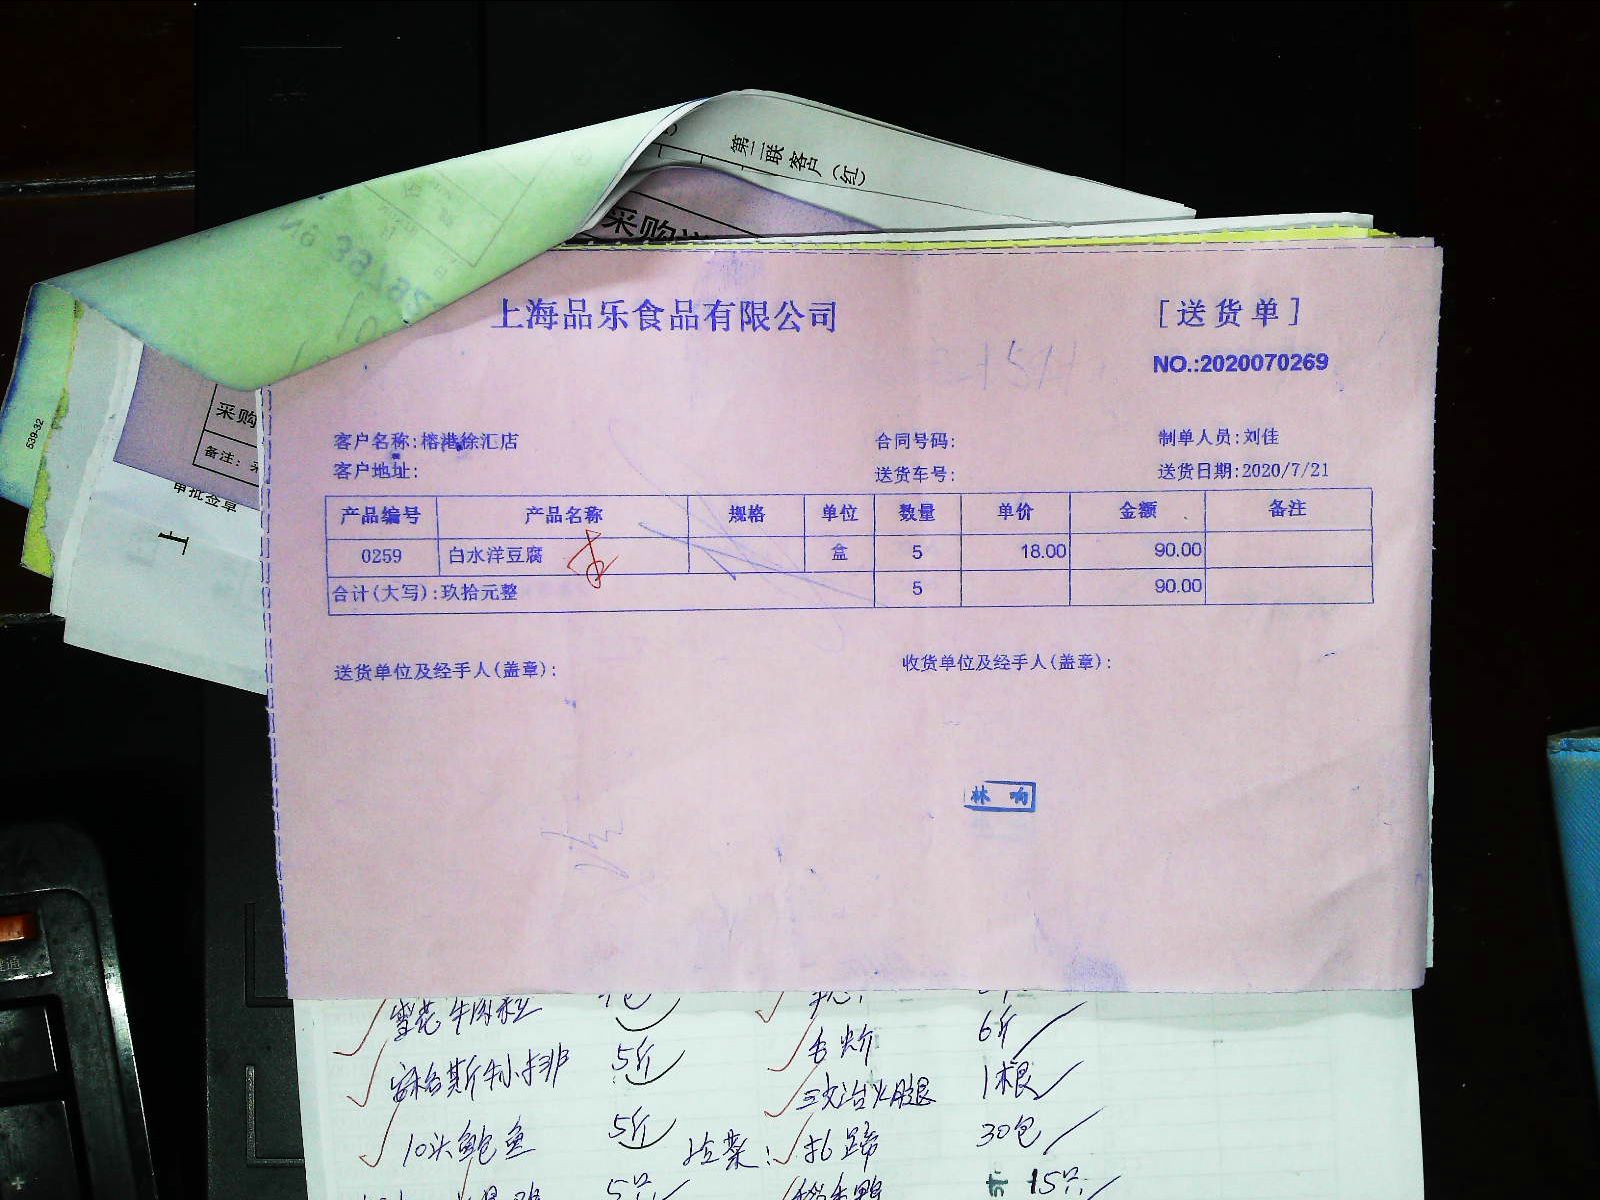 第二联客户（红）
采购
上海品乐食品有限公司
[送货单]
NO.:2020070269
采购
539-32
备注：
客户名称:榕港徐汇店 合同号码: 制单人员:刘佳
客户地址: 送货车号: 送货日期:2020/7/21
审批签章
上
产品编号 产品名称 规格 单位 数量 单价 金额 备注
0259 白水洋豆腐 盒 5 18.00 90.00
合计(大写):玖拾元整 5 90.00
送货单位及经手人(盖章): 收货单位及经手人(盖章):
林 响
雪花牛肉粒
6斤
安格斯牛小排 5斤
三文治火腿 1根
10头鲍鱼 5斤
扎蹄 30包
15只